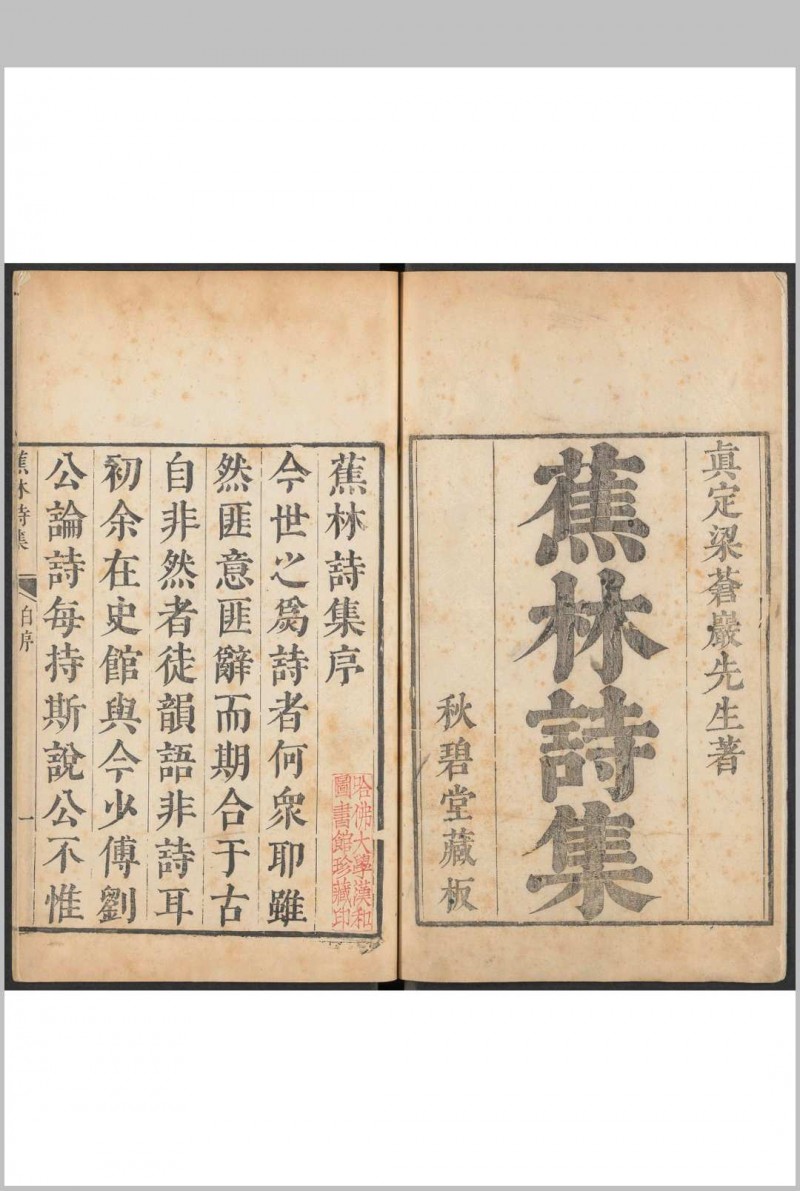 真定梁蒼巖先生著
蕉林詩集
秋碧堂藏板
蕉林詩集序
今世之爲詩者何衆耶雖
然匪意匪辭而期合于古
自非然者徒韻語非詩耳
初余在史館與今少傅劉
公論詩每持斯說公不惟
蕉林詩集
自序
一
哈佛大學漢和
圖書館珍藏印